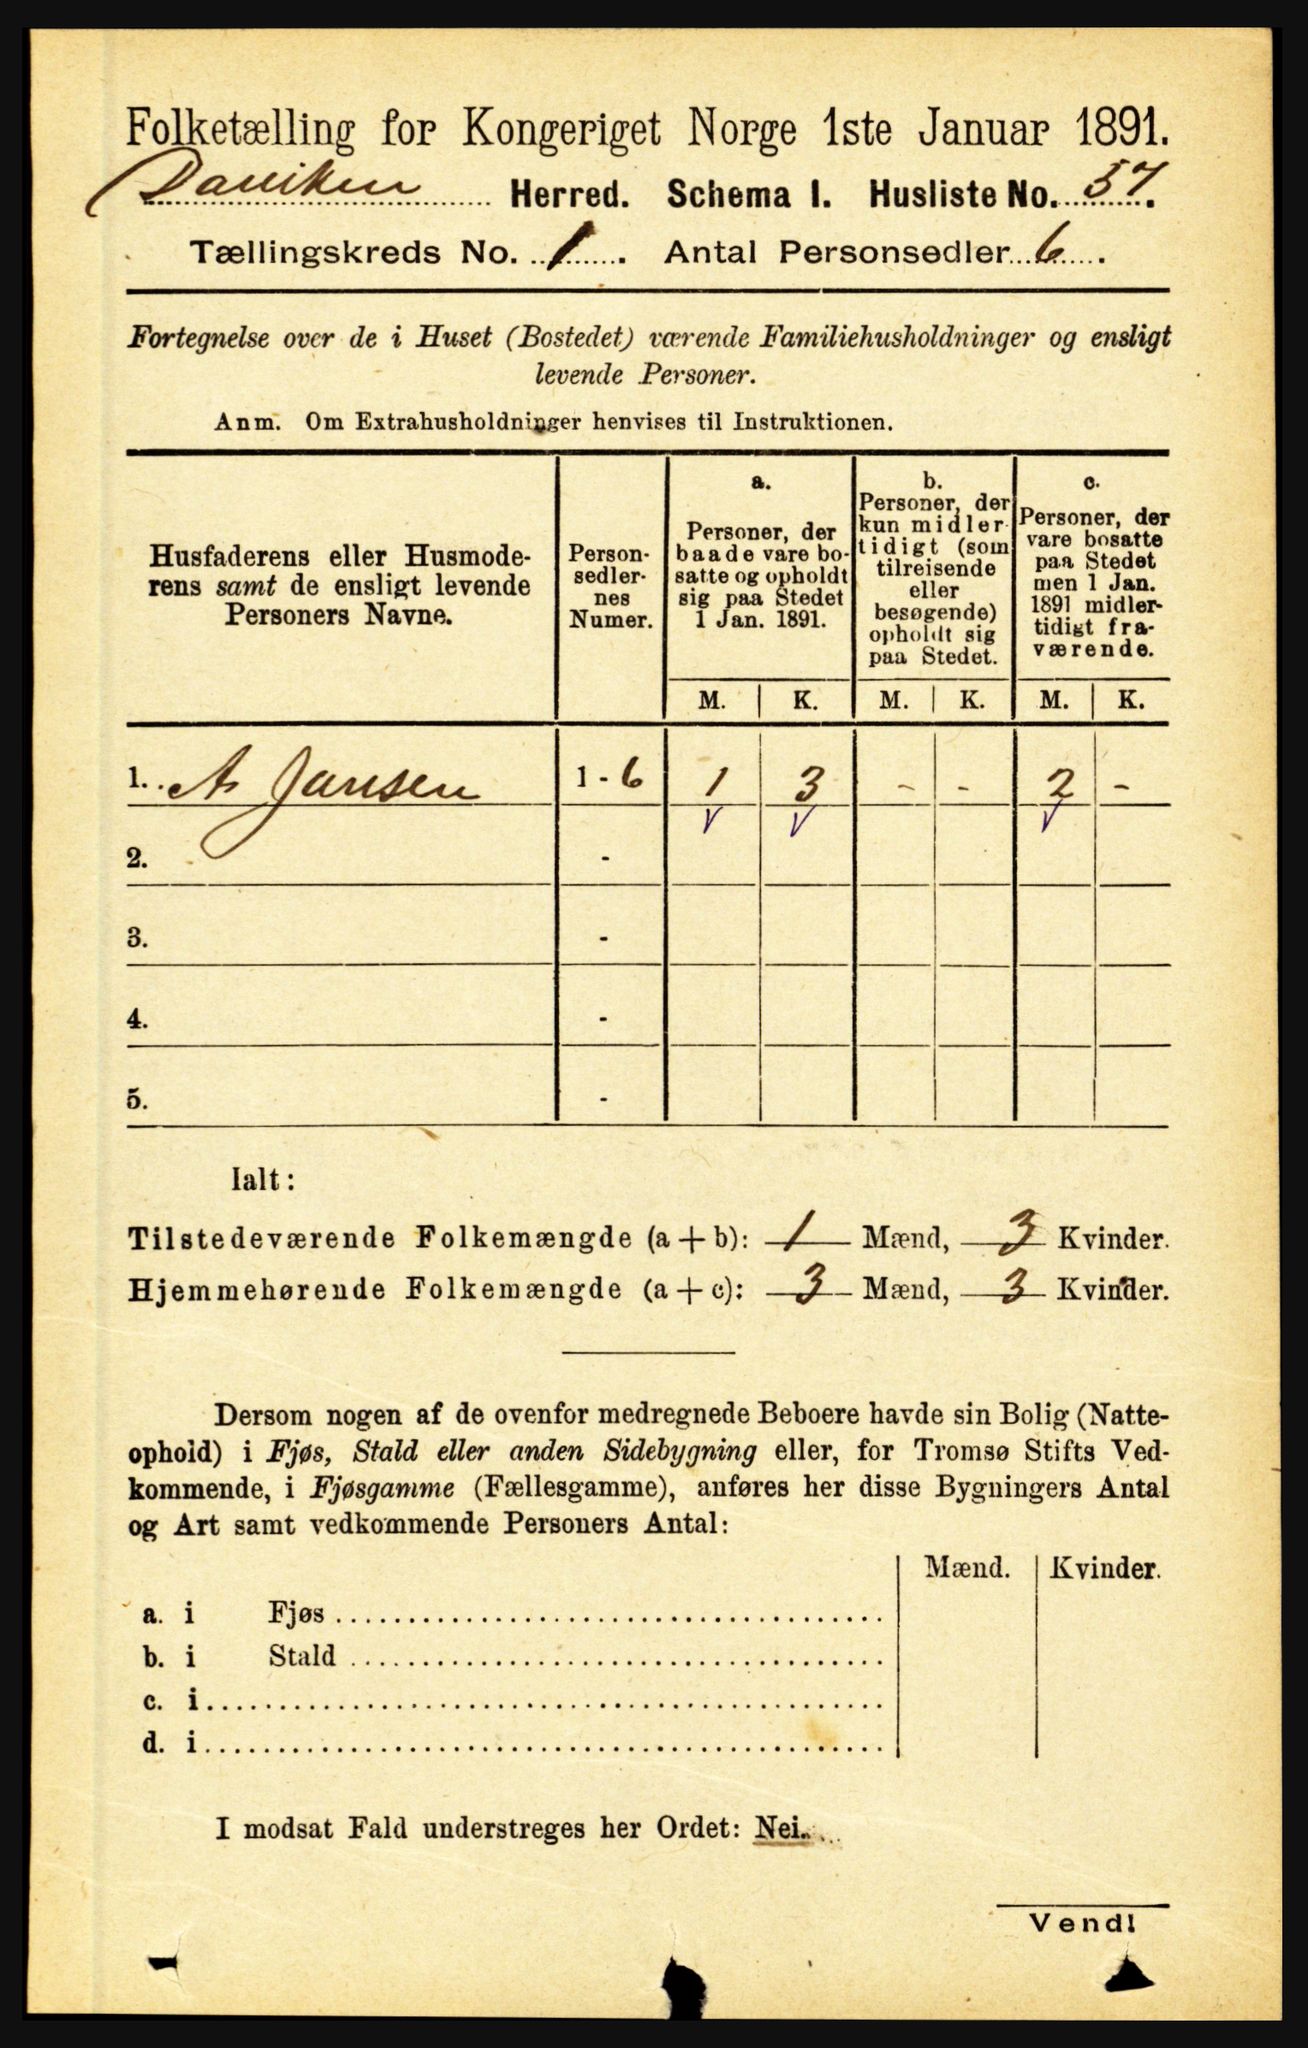 Folketælling for Kongeriget Norge 1ste Januar 1891.
Daviken Herred. Schema I. Husliste No. 57.
Tællingskreds No. 1. Antal Personsedler 6.
Fortegnelse over de i Huset (Bostedet) værende Familiehusholdninger og ensligt
levende Personer.
Anm. Om Extrahusholdninger henvises til Instruktionen.
Husfaderens eller Husmode-
rens samt de ensligt levende
Personers Navne.
Person-
sedler-
nes
Numer.
a.
Personer, der
baade vare bo-
satte og opholdt
sig paa Stedet
1 Jan. 1891.
b.
Personer, der
kun midler-
tidigt (som
tilreisende
eller
besøgende)
opholdt sig
paa Stedet.
c.
Personer, der
vare bosatte
paa Stedet
men 1 Jan.
1891 midler-
tidigt fra-
værende.
M. K. M. K. M. K.
1. A. Jansen 1 - 6 1 3 - - 2 -
2. -
3. -
4. -
5. -
Ialt:
Tilstedeværende Folkemængde (a + b): 1 Mænd, 3 Kvinder.
Hjemmehørende Folkemængde (a + c): 3 Mænd, 3 Kvinder.
Dersom nogen af de ovenfor medregnede Beboere havde sin Bolig (Natte-
ophold) i Fjøs, Stald eller anden Sidebygning eller, for Tromsø Stifts Ved-
kommende, i Fjøsgamme (Fællesgamme), anføres her disse Bygningers Antal
og Art samt vedkommende Personers Antal:
Mænd. Kvinder.
a. i Fjøs
b. i Stald
c. i
d. i
I modsat Fald understreges her Ordet: Nei.
Vend!